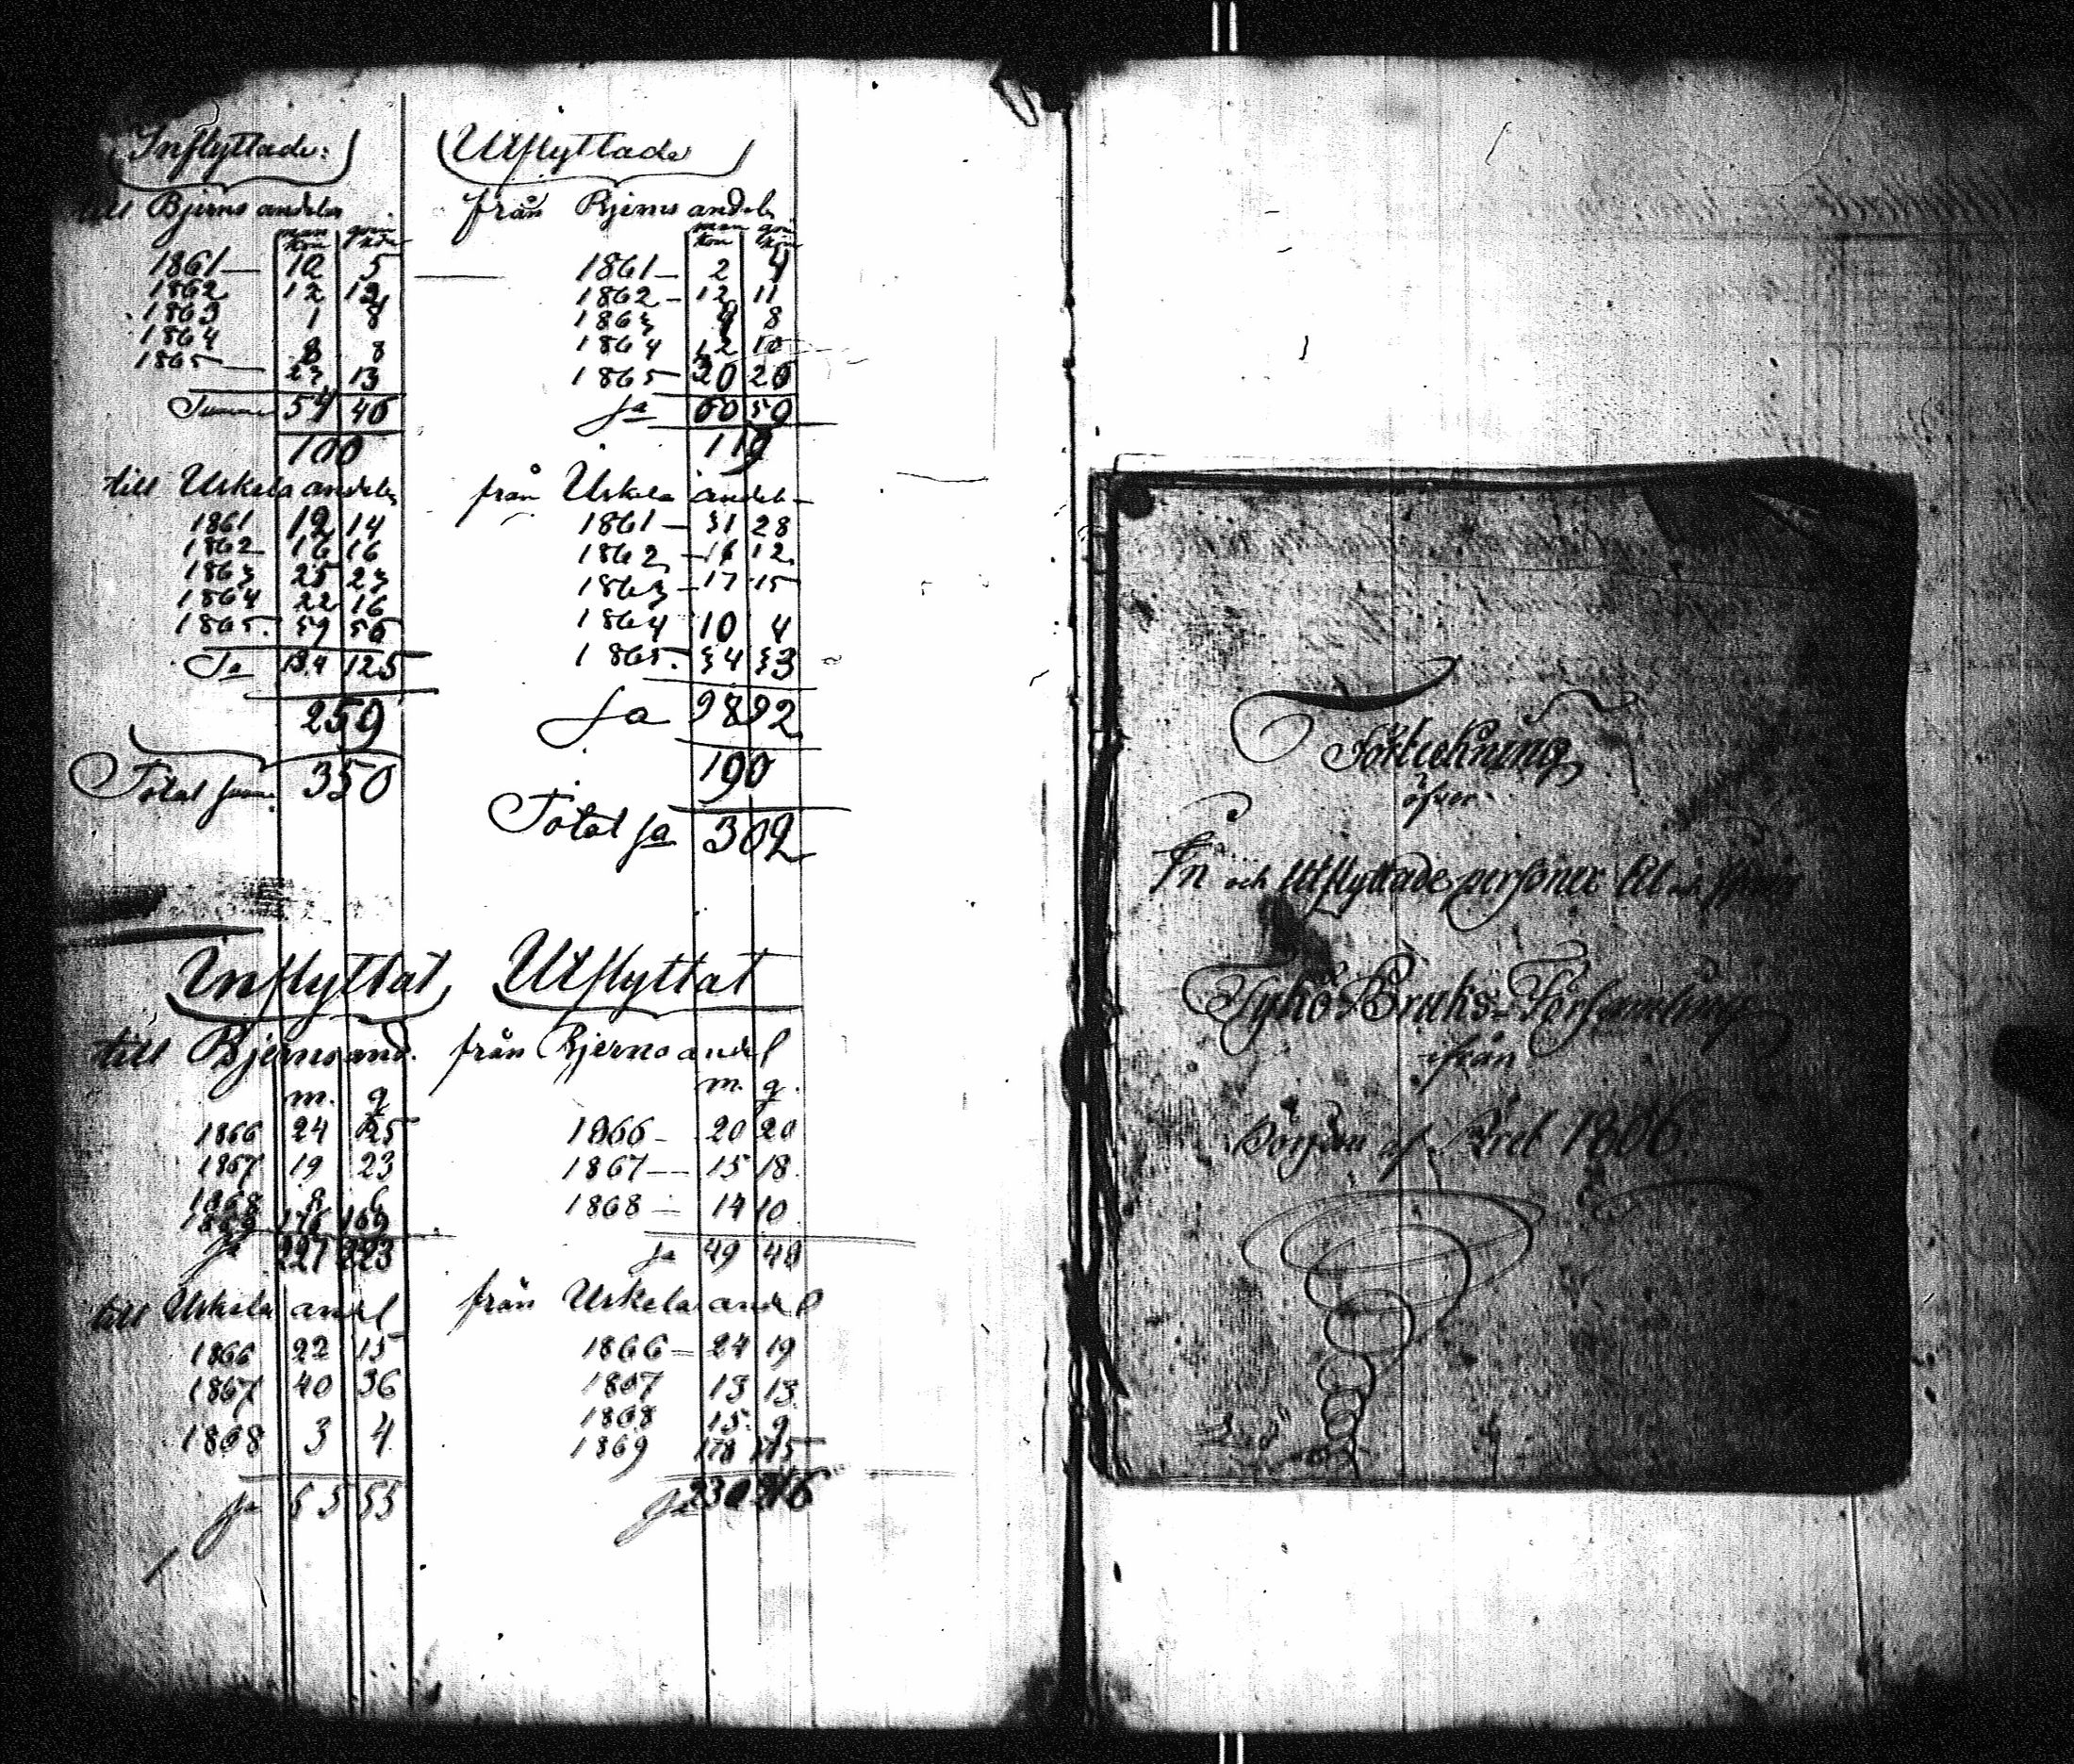 Inflyttade:
till Bjerno andelen
man kön qvin kön
1861 — 10 5
1862 12 12
1863 1 8
1864 8 8
1865 — 23 13
Summa 54 46
100
till Uskela andelen
1861 12 14
1862 16 16
1863 25 23
1864 22 16
1865. 59 56
Sa 134 125
259
Total sum. 350
Utflyttade
från Bjerno andelen
man kön qvin kön
1861 — 2 4
1862 — 12 11
1863 4 8
1864 12 10
1865 20 26
Sa 60 59
119
från Uskela andeln
1861 — 31 28
1862 — 16 12
1863 — 17 15
1864 10 4
1865. 34 33
Sa 98 92
190
Total Sa 309
Inflyttat
till Bjerno and.
m. q
1866 24 25
1867 19 23
1868 8 6
1869 176 169
Sa 227 223
till Uskela andel
1866 22 15
1867 40 36
1868 3 4
Sa 65 55
Utflyttat
från Bjerno andel
m. q.
1866 — 20 20
1867 — 15 18
1868 — 14 10
Sa 49 48
från Uskela andel
1866 — 24 19
1867 13 13
1868 15 9
1869 178 175
Sa 230 216
Förteckning
öfver
In och Utflyttade personer til och ifrån
Tykö Bruks-Församling
ifrån
Början af Året 1806.